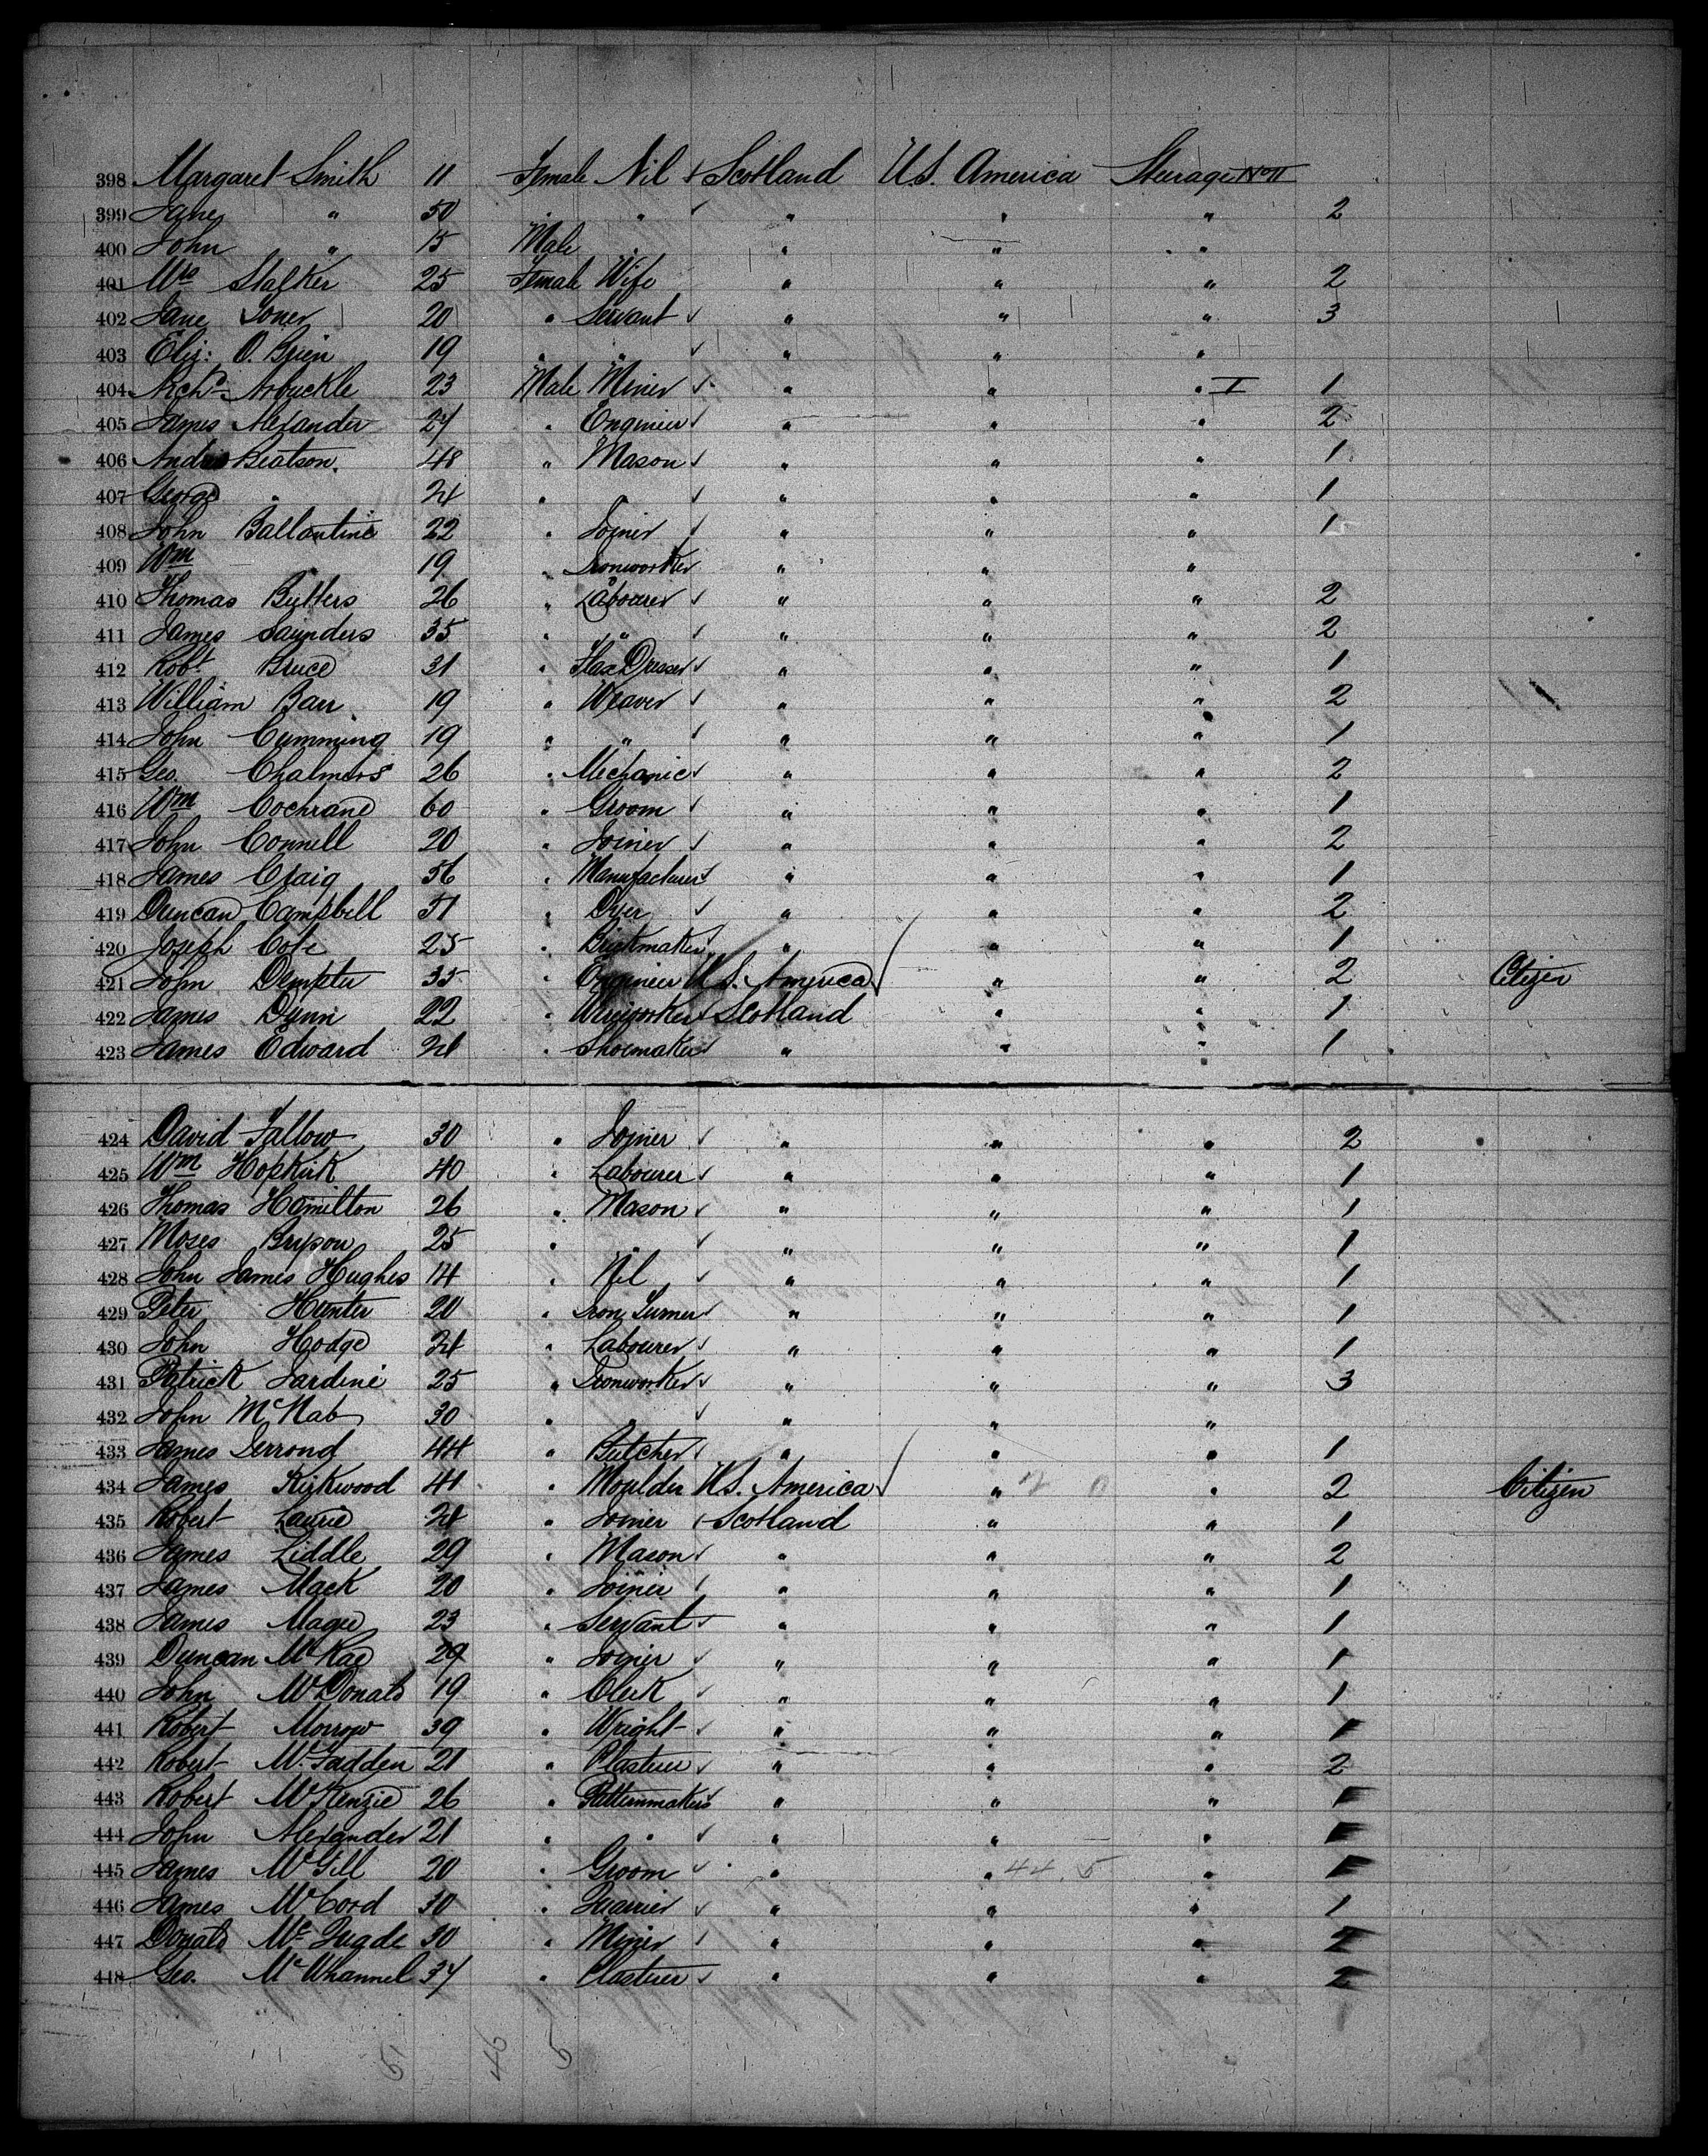 398 Margaret Smith 11 Female Nil Scotland U.S. America Steerage No II
399 Jane " 50 " " " " " 2
400 John " 15 Male " " "
401 Mrs Stalker 25 Female Wife " " " 2
402 Jane Toner 20 " Servant " " " 3
403 Eliz: O. Brien 19 " " " " "
404 Archd Arbuckle 23 Male Miner " " " I 1
405 James Alexander 24 " Engineer " " " 2
406 Andrew Beatson 48 " Mason " " " 1
407 George " 24 " " " " " 1
408 John Ballantine 22 " Joiner " " " 1
409 Wm 19 " Ironworker " " "
410 Thomas Butters 26 " Labourer " " " 2
411 James Saunders 35 " " " " " 2
412 Robt Bruce 31 " Flax Dresser " " " 1
413 William Barr 19 " Weaver " " " 2
414 John Cumming 19 " " " " " 1
415 Geo. Chalmers 26 " Mechanic " " " 2
416 Wm Cochrane 60 " Groom " " " 1
417 John Connell 20 " Joiner " " " 2
418 James Craig 56 " Manufacturer " " " 1
419 Duncan Campbell 51 " Dyer " " " 2
420 Joseph Cole 25 " Brickmaker " " " 1
421 John Dempster 35 " Engineer U.S. America " " 2 Citizen
422 James Dunn 22 " Wireworker Scotland " " 1
423 James Edward 24 " Shoemaker " " " 1
424 David Fallow 30 " Joiner " " " 2
425 Wm Hopkirk 40 " Labourer " " " 1
426 Thomas Hamilton 26 " Mason " " " 1
427 Moses Bryson 25 " " " " " 1
428 John James Hughes 14 " Nil " " " 1
429 Peter Hunter 20 " Iron Turner " " " 1
430 John Hodge 24 " Labourer " " " 1
431 Patrick Jardine 25 " Ironworker " " " 3
432 John McNab 30 " " " " "
433 James Jerrond 44 " Butcher " " " 1
434 James Kirkwood 41 " Moulder U.S. America " " 2 Citizen
435 Robert Laurie 24 " Joiner Scotland " " 1
436 James Liddle 29 " Mason " " " 2
437 James Mack 20 " Joiner " " " 1
438 James Magee 23 " Servant " " " 1
439 Duncan McRae 29 " Joiner " " " 1
440 John McDonald 19 " Clerk " " " 1
441 Robert Morrow 39 " Wright " " " 1
442 Robert McFadden 21 " Plasterer " " " 2
443 Robert McKenzie 26 " Patternmaker " " " 1
444 John Alexander 21 " " " " " 1
445 James McGill 20 " Groom " " 44 5 " 1
446 James McCord 30 " Quarrier " " " 1
447 Donald McQuade 30 " Miner " " " 2
448 Geo. McWhannel 34 " Plasterer " " " 2
46 5